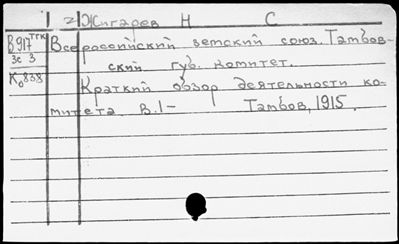 2) Жигарев Н С
В917ТГК Всероссийский земский союз. Тамбов-
Зс 3 ский губ. комитет.
К0838 Краткий обзор деятельности ко-
митета В.1- Тамбов, 1915.